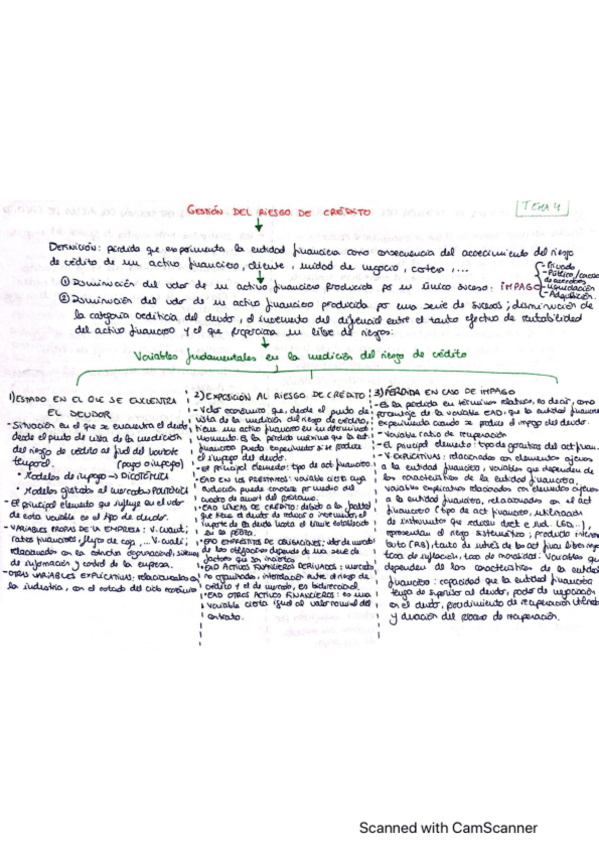 GESTIÓN DEL RIESGO DE CRÉDITO
TEMA 4
DEFINICIÓN: pérdida que experimenta la entidad financiera como consecuencia del acaecimiento del riesgo
de crédito de un activo financiero, cliente, unidad de negocio, cartera,...
① Disminución del valor de un activo financiero producida por un único suceso: IMPAGO
- Privado
- Público / concurso de acreedores
- Liquidación
- Adquisición.
② Disminución del valor de un activo financiero producida por una serie de sucesos; disminución de
la categoría crediticia del deudor, el incremento del diferencial entre el tanto efectivo de rentabilidad
del activo financiero y el que proporciona un libre de riesgo:
Variables fundamentales en la medición del riesgo de crédito
1) ESTADO EN EL QUE SE ENCUENTRA
EL DEUDOR
- Situación en el que se encuentra el deudor
desde el punto de vista de la medición
del riesgo de crédito al final del horizonte
temporal. (pago o impago)
• Modelos de impago → DICOTÓMICA
• Modelos ajustados al mercado → POLITÓMICA
- El principal elemento que influye en el valor
de esta variable es el tipo de deudor.
- VARIABLES PROPIAS DE LA EMPRESA: V. cuant.;
ratios financieros, flujos de caja, ... V. cuali;
relacionados con la estructura organizacional, sistemas
de información y control de la empresa.
- OTRAS VARIABLES EXPLICATIVAS: relacionadas con
la industria, con el estado del ciclo económico
2) EXPOSICIÓN AL RIESGO DE CRÉDITO
- Valor económico que, desde el punto de
vista de la medición del riesgo de crédito,
tiene un activo financiero en un determinado
momento. Es la pérdida máxima que la ent.
financiera puede experimentar si se produce
el impago del deudor.
- El principal elemento: tipo de act financiero
- EAD EN LOS PRÉSTAMOS: variable cierta cuya
evolución puede conocerse por medio del
cuadro de amort del préstamo.
- EAD LÍNEAS DE CRÉDITO: debido a la facultad
que tiene el deudor de reducir o incrementar el
importe de la deuda hasta el límite establecido
en la póliza.
- EAD EMPRÉSTITOS DE OBLIGACIONES: valor de mercado
de las obligaciones depende de una serie de
factores que son inciertos
- EAD ACTIVOS FINANCIEROS DERIVADOS: mercado
no organizados, interrelación entre el riesgo de
crédito y el de mercado, es bidireccional.
- EAD OTROS ACTIVOS FINANCIEROS: es una
variable cierta igual al valor nominal del
contrato.
3) PÉRDIDA EN CASO DE IMPAGO
- Es la pérdida en términos relativos, es decir, como
porcentaje de la variable EAD, que la entidad financiera
experimenta cuando se produce el impago del deudor.
- Variable ratio de recuperación
- El principal elemento: tipo de garantías del act finan.
- V EXPLICATIVAS: relacionadas con elementos ajenos
a la entidad financiera, variables que dependen de
las características de la entidad financiera,
variables explicativas relacionadas con elementos ajenos
a la entidad financiera, relacionadas con el act
financiero (tipo de act financiero,
de instrumentos que reducen direct e ind. LGD...),
representan el riesgo sistemático; producto interior
bruto (PIB), tanto de interés de los act finan libres riesgo
tasa de inflación, tasa de morosidad. Variables que
dependen de las características de la entidad
financiera: capacidad que la entidad financiera
tenga de supervisar al deudor, poder de negociación
con el deudor, procedimiento de recuperación
y duración del proceso de recuperación.
Scanned with CamScanner